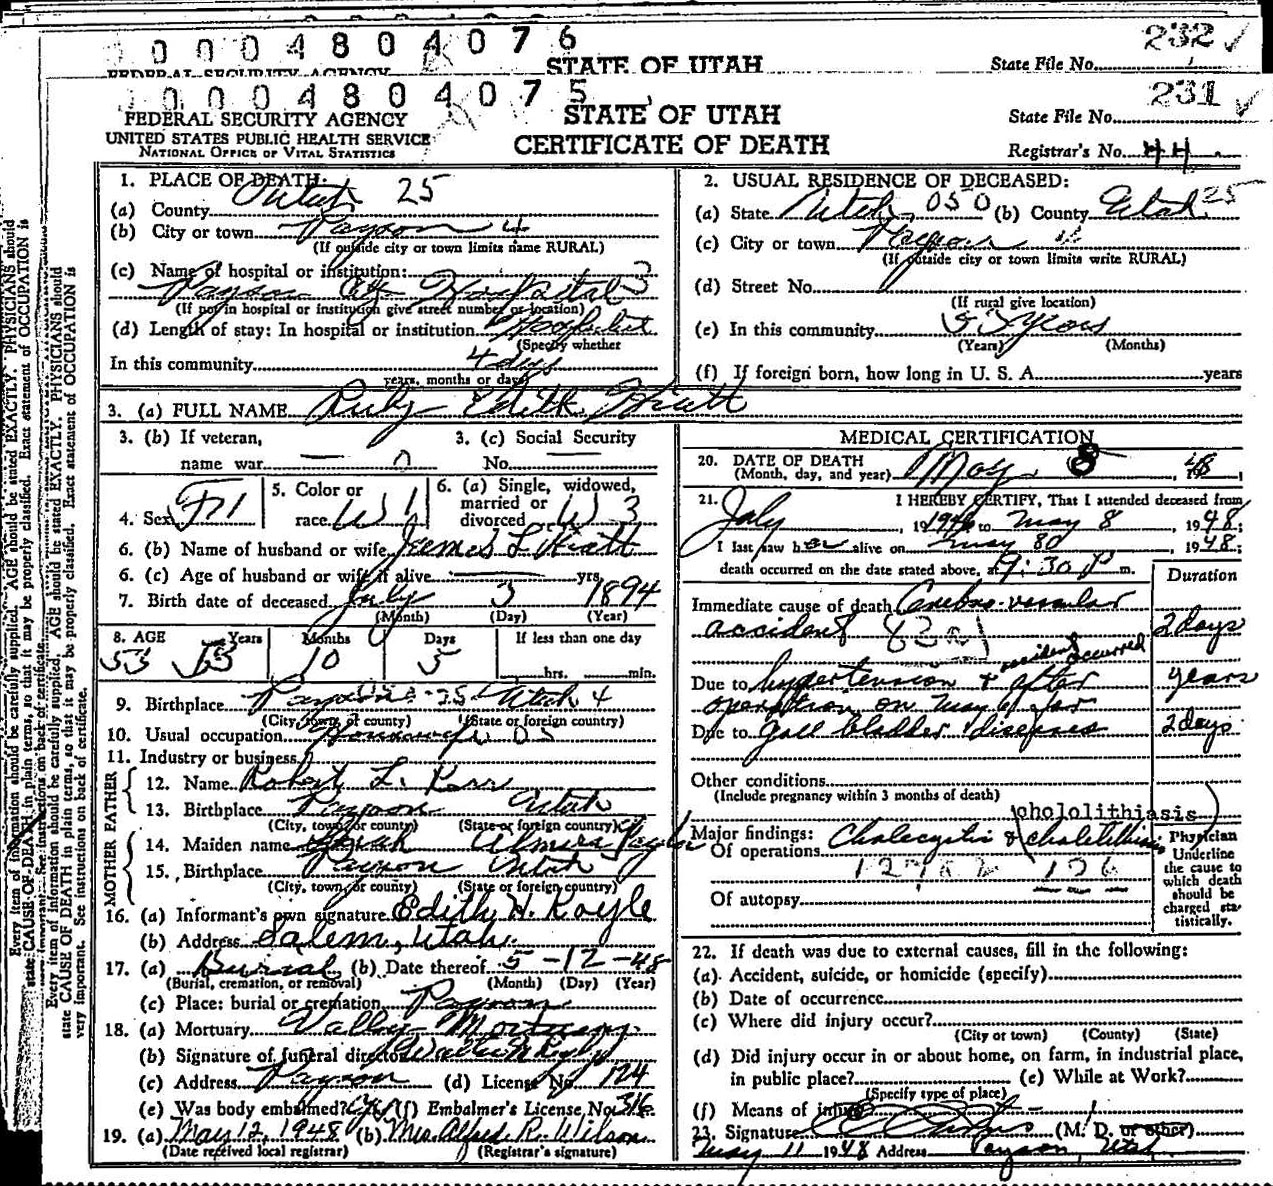 0 0 0 0 4 8 0 4 0 7 6
232 ✓
FEDERAL SECURITY AGENCY
STATE OF UTAH
State File No.
0 0 0 0 4 8 0 4 0 7 5
231 ✓
FEDERAL SECURITY AGENCY
STATE OF UTAH
State File No.
UNITED STATES PUBLIC HEALTH SERVICE
CERTIFICATE OF DEATH
NATIONAL OFFICE OF VITAL STATISTICS
Registrar's No. 44
1. PLACE OF DEATH:
(a) County Utah 25
(b) City or town Payson 4
(If outside city or town limits name RURAL)
(c) Name of hospital or institution:
Payson City Hospital 3
(If not in hospital or institution give street number or location)
(d) Length of stay: In hospital or institution
(Specify whether
In this community 4 days
years, months or days)
2. USUAL RESIDENCE OF DECEASED:
(a) State Utah 050 (b) County Utah 25
(c) City or town Payson
(If outside city or town limits write RURAL)
(d) Street No.
(If rural give location)
(e) In this community years
(Years) (Months)
(f) If foreign born, how long in U. S. A. years
3. (a) FULL NAME Ruby Edith Hiatt
3. (b) If veteran, name war
3. (c) Social Security No.
4. Sex F
5. Color or race W 1
6. (a) Single, widowed, married or divorced W 3
6. (b) Name of husband or wife James L Hiatt
6. (c) Age of husband or wife if alive yrs.
7. Birth date of deceased July 3 1894
(Month) (Day) (Year)
8. AGE Years Months Days If less than one day
53 53 10 5 hrs. min.
9. Birthplace Payson 25 Utah 4
(City, town, or county) (State or foreign country)
10. Usual occupation Housewife
11. Industry or business
FATHER
12. Name Robert L.
13. Birthplace Payson Utah
(City, town, or county) (State or foreign country)
MOTHER
14. Maiden name Almira Taylor
15. Birthplace Payson Utah
(City, town, or county) (State or foreign country)
16. (a) Informant's own signature Edith H. Koyle
(b) Address Salem, Utah.
17. (a) Burial (b) Date thereof 5-12-48
(Burial, cremation, or removal) (Month) (Day) (Year)
(c) Place: burial or cremation Payson
18. (a) Mortuary Valley Mortuary
(b) Signature of funeral director
(c) Address Payson (d) License No. 124
(e) Was body embalmed? yes (f) Embalmer's License No. 316
19. (a) May 12, 1948 (b) Mrs. Alfred R. Wilson
(Date received local registrar) (Registrar's signature)
MEDICAL CERTIFICATION
20. DATE OF DEATH
(Month, day, and year) May 8, 48
21. I HEREBY CERTIFY, That I attended deceased from
July, 1946 to May 8, 1948;
I last saw her alive on May 8, 1948;
death occurred on the date stated above, at 9:30 P m.
Duration
Immediate cause of death Cerebro-vascular
accident 2 days
accident occurred
Due to hypertension & after years
operation on May 6 for
Due to gall bladder disease 2 days
Other conditions
(Include pregnancy within 3 months of death)
chololithiasis
Major findings:
Of operations
126
Of autopsy
Physician
Underline the cause to which death should be charged statistically.
22. If death was due to external causes, fill in the following:
(a) Accident, suicide, or homicide (specify)
(b) Date of occurrence
(c) Where did injury occur?
(City or town) (County) (State)
(d) Did injury occur in or about home, on farm, in industrial place,
in public place? (e) While at Work?
(Specify type of place)
(f) Means of injury
23. Signature (M. D. or other)
May 11 1948 Address Payson, Utah
Every item of information should be carefully supplied. AGE should be stated EXACTLY. PHYSICIANS should
state CAUSE OF DEATH in plain terms, so that it may be properly classified. Exact statement of OCCUPATION is
very important. See instructions on back of certificate.